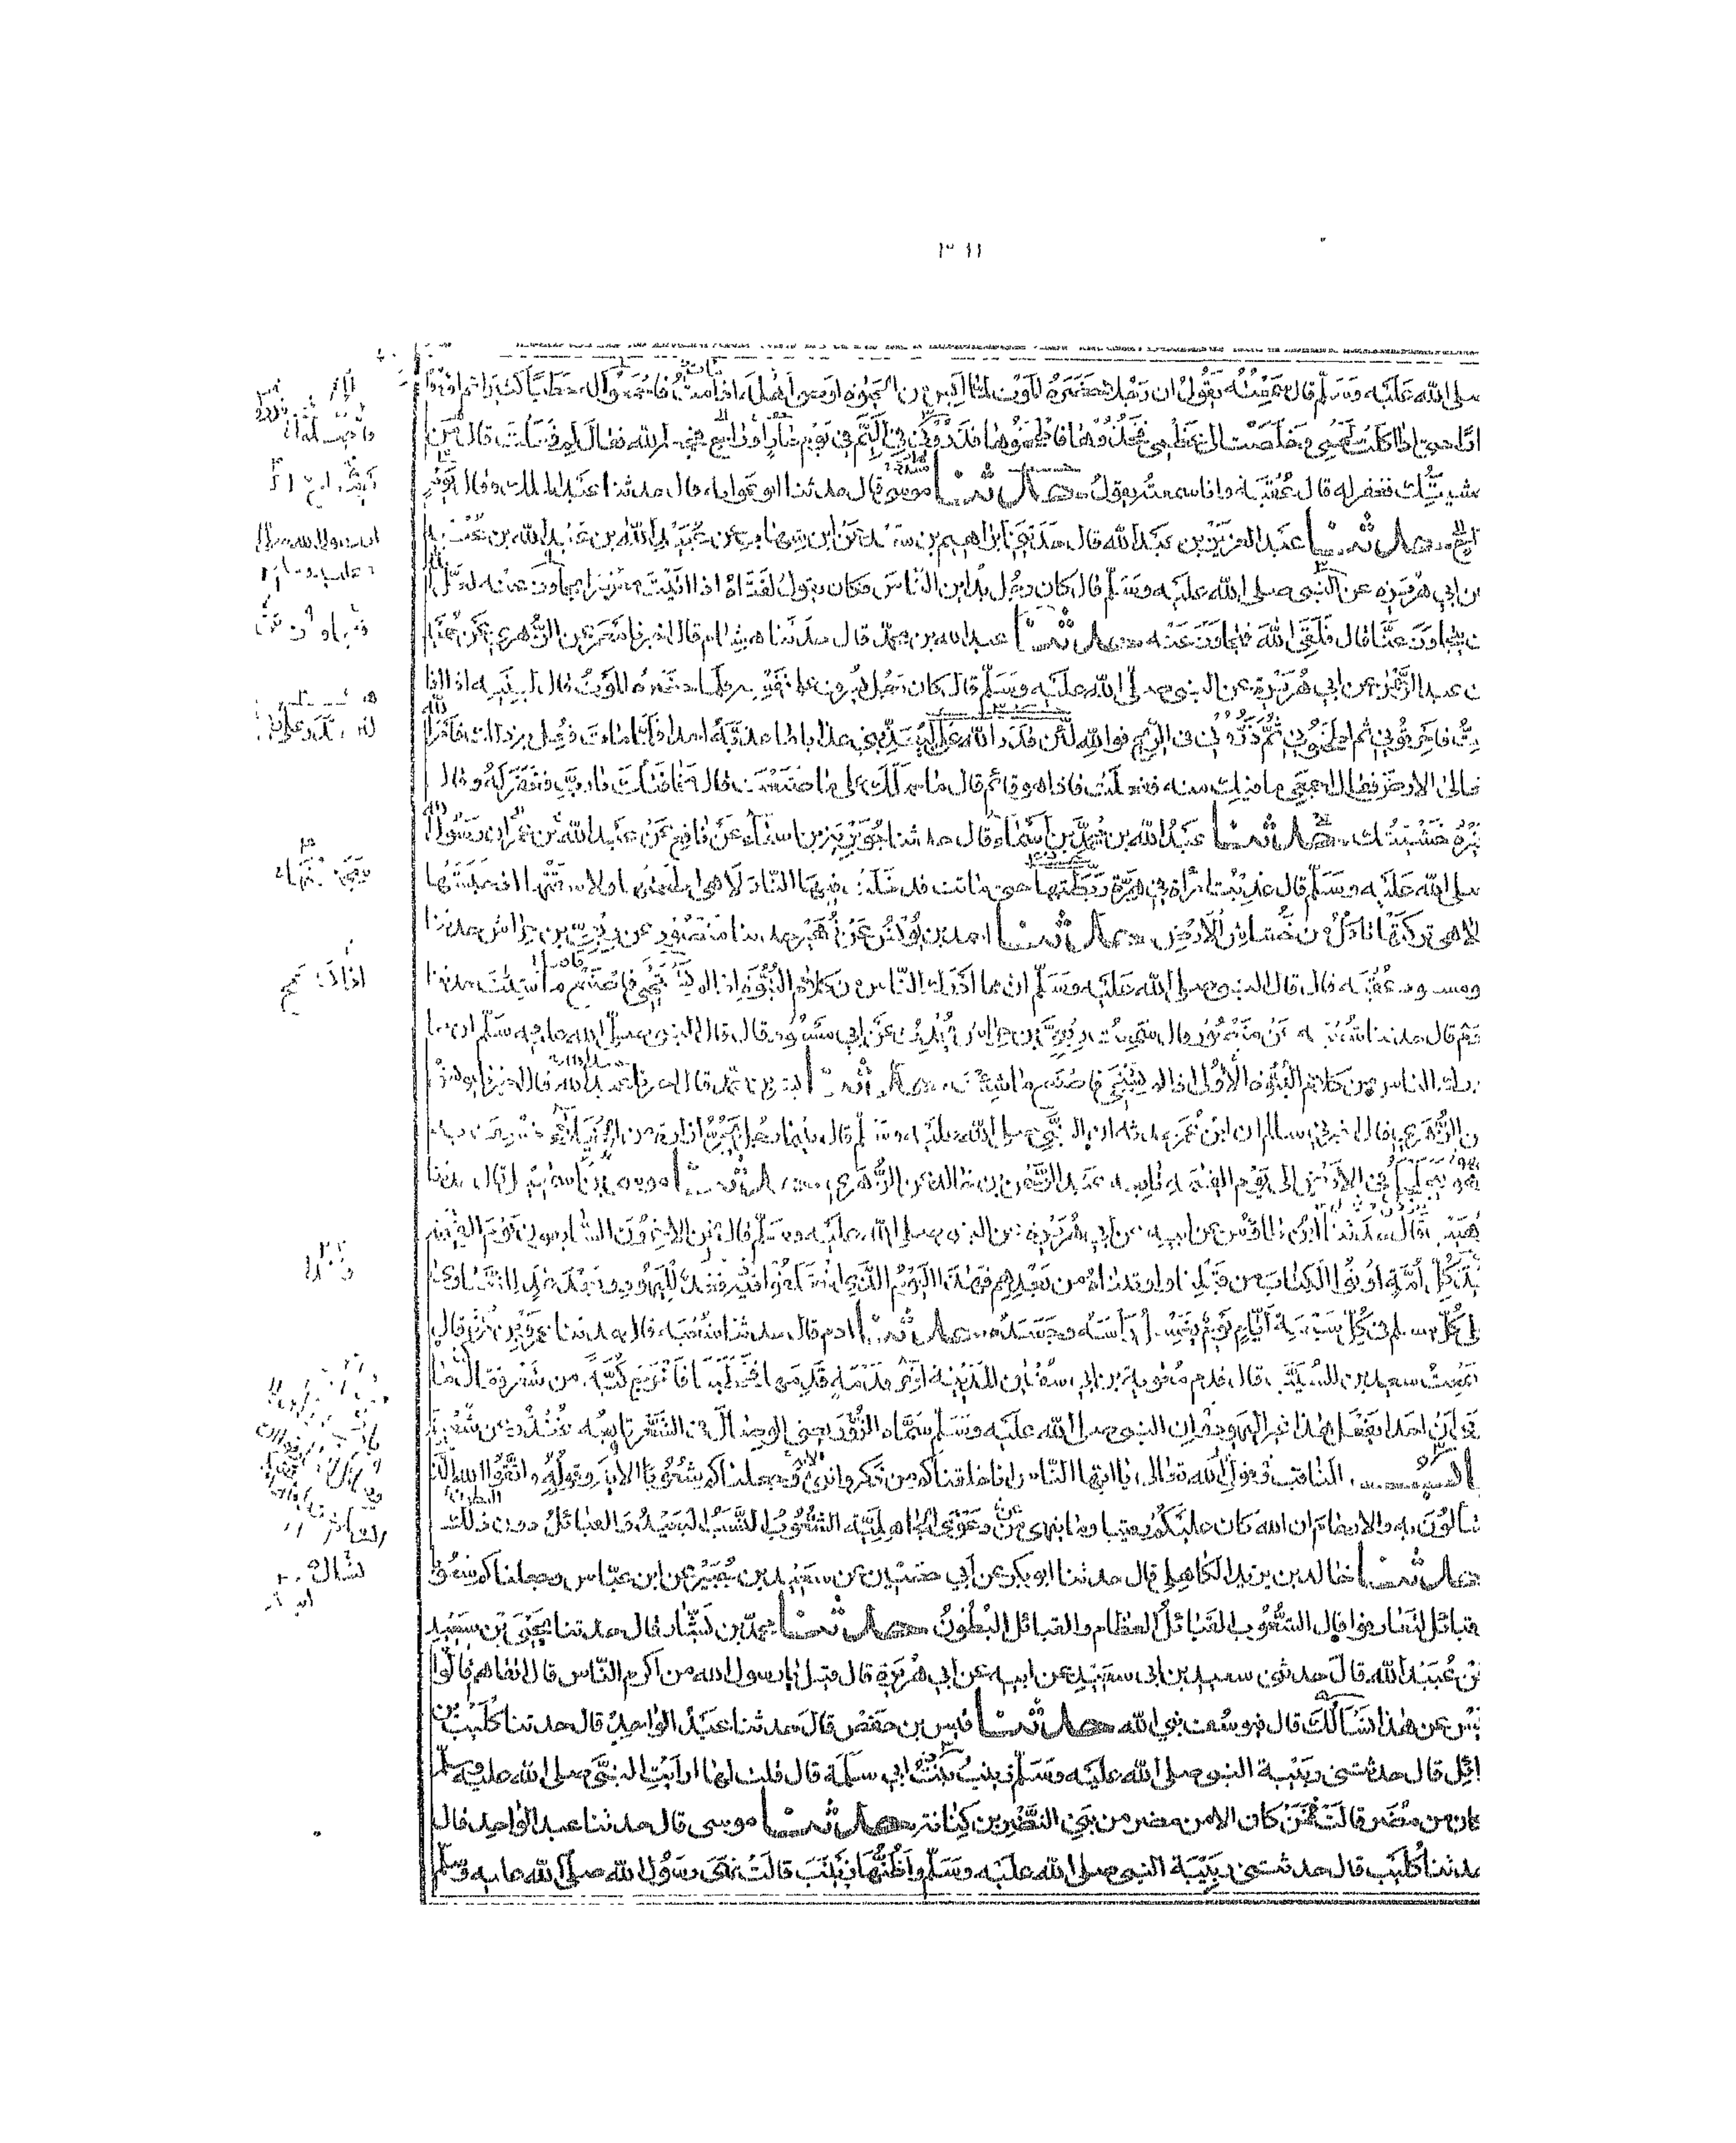 ٣١١
صلى الله عليه وسلم قال سمعته يقول ان رجلا حضره الموت لما ايس من الحيوة اوصى اهله اذا مت فاجمعوا لى حطبا كثيرا ثم اوروا
نارا حتى اذا اكلت لحمى وخلصت الى عظمى فخذوها فاطحنوها فذرونى فى اليم فى يوم حار او راح فجمعه الله فقال لم فعلت قال من
خشيتك فغفر له قال عقبة وانا سمعته يقول حدثنا موسى قال حدثنا ابو عوانة قال حدثنا عبد الملك وقال يوم
راح حدثنا عبد العزيز بن عبد الله قال حدثنى ابراهيم بن سعد عن ابن شهاب عن عبيد الله بن عبد الله بن عتبة
عن ابى هريرة عن النبى صلى الله عليه وسلم قال كان رجل يداين الناس فكان يقول لفتاه اذا اتيت معسرا تجاوز عنه لعل الله
ان يتجاوز عنا قال فلقى الله فتجاوز عنه حدثنا عبد الله بن محمد قال حدثنا هشام قال اخبرنا معمر عن الزهرى عن حميد
بن عبد الرحمن عن ابى هريرة عن النبى صلى الله عليه وسلم قال كان رجل يسرف على نفسه فلما حضره الموت قال لبنيه اذا انا
مت فاحرقونى ثم اطحنونى ثم ذرونى فى الريح فوالله لئن قدر الله على ليعذبنى عذابا ما عذبه احدا فلما مات فعل به ذلك فامر الله
تعالى الارض فقال اجمعى ما فيك منه ففعلت فاذا هو قائم قال ما حملك على ما صنعت قال مخافتك يا رب فغفر له وقال
غيره خشيتك حدثنا عبد الله بن محمد بن اسماء قال حدثنا جويرية بن اسماء عن نافع عن عبد الله بن عمر ان رسول الله
صلى الله عليه وسلم قال عذبت امرأة فى هرة ربطتها حتى ماتت فدخلت فيها النار لا هى اطعمتها ولا سقتها اذ حبستها
ولا هى تركتها تاكل من خشاش الارض حدثنا احمد بن يونس عن زهير حدثنا منصور عن ربعى بن حراش حدثنا
ابو مسعود عقبة قال قال النبى صلى الله عليه وسلم ان مما ادرك الناس من كلام النبوة اذا لم تستحى فاصنع ما شئت حدثنا
ادم قال حدثنا شعبة عن منصور قال سمعت ربعى بن حراش يحدث عن ابى مسعود قال قال النبى صلى الله عليه وسلم ان مما
ادرك الناس من كلام النبوة الاولى اذا لم تستحى فاصنع ما شئت حدثنا بشر بن محمد قال اخبرنا عبد الله قال اخبرنا يونس
عن الزهرى قال اخبرنى سالم ان ابن عمر حدثه ان النبى صلى الله عليه وسلم قال بينما رجل يجر ازاره من الخيلاء خسف به
فهو يتجلجل فى الارض الى يوم القيمة تابعه عبد الرحمن بن خالد عن الزهرى حدثنا موسى بن اسمعيل قال حدثنا
وهيب قال حدثنا ابن طاوس عن ابيه عن ابى هريرة عن النبى صلى الله عليه وسلم قال نحن الاخرون السابقون يوم القيمة
بيد كل امة اوتوا الكتاب من قبلنا واوتيناه من بعدهم فهذا اليوم الذى اختلفوا فيه فغدا لليهود وبعد غد للنصارى
على كل مسلم فى كل سبعة ايام يوم يغسل رأسه وجسده حدثنا ادم قال حدثنا شعبة قال حدثنا عمرو بن مرة قال
سمعت سعيد بن المسيب قال قدم معوية بن ابى سفيان المدينة اخر قدمة قدمها فخطبنا فاخرج كبة من شعر فقال ما
كنت ارى ان احدا يفعل هذا غير اليهود وان النبى صلى الله عليه وسلم سماه الزور يعنى الوصال فى الشعر تابعه غندر عن شعبة
المناقب وقول الله تعالى يا ايها الناس انا خلقناكم من ذكر وانثى وجعلناكم شعوبا الاية وقوله واتقوا الله الذى
تساءلون به والارحام ان الله كان عليكم رقيبا وما ينهى عن دعوى الجاهلية الشعوب النسب البعيد والقبائل دون ذلك
حدثنا خالد بن يزيد الكاهلى قال حدثنا ابو بكر عن ابى حصين عن سعيد بن جبير عن ابن عباس وجعلناكم شعوبا
وقبائل لتعارفوا قال الشعوب القبائل العظام والقبائل البطون حدثنا محمد بن بشار قال حدثنا يحيى بن سعيد
عن عبيد الله قال حدثنى سعيد بن ابى سعيد عن ابيه عن ابى هريرة قال قيل يا رسول الله من اكرم الناس قال اتقاهم قالوا
ليس عن هذا نسألك قال فيوسف نبى الله حدثنا قيس بن حفص قال حدثنا عبد الواحد قال حدثنا كليب بن
وائل قال حدثتنى ربيبة النبى صلى الله عليه وسلم زينب بنت ابى سلمة قال قلت لها ارايت النبى صلى الله عليه وسلم
كان من مضر قالت فمن كان الا من مضر من بنى النضر بن كنانة حدثنا موسى قال حدثنا عبد الواحد قال
حدثنا كليب قال حدثتنى ربيبة النبى صلى الله عليه وسلم واظنها زينب قالت نهى رسول الله صلى الله عليه وسلم